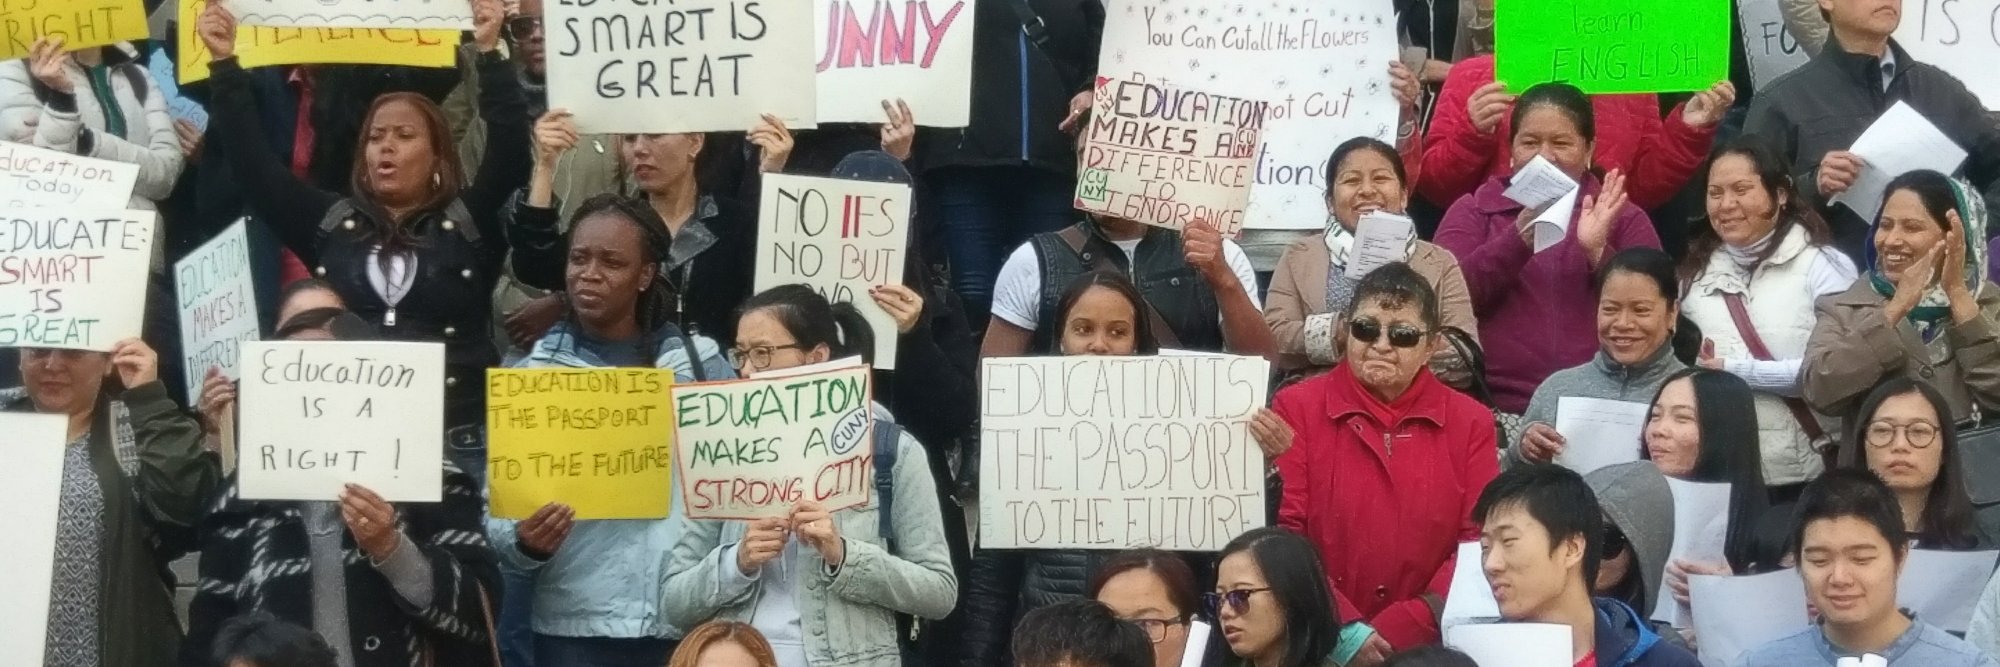 RIGHT
DIFFERENCE
SMART IS
GREAT
UNNY
You Can Cut all the FLowers
not Cut
tion
learn
ENGLISH
FO
IS
ducation
Today
EDUCATE:
SMART
IS
GREAT
EDUCATION
MAKES A
DIFFERENCE
Education
IS A
RIGHT!
EDUCATION IS
THE PASSPORT
TO THE FUTURE
EDUCATION
MAKES A CUNY
STRONG CITY
NO IFS
NO BUT
CUNY EDUCATION
MAKES A CUNY
DIFFERENCE
CUNY TO
IGNORANCE
EDUCATION IS
THE PASSPORT
TO THE FUTURE